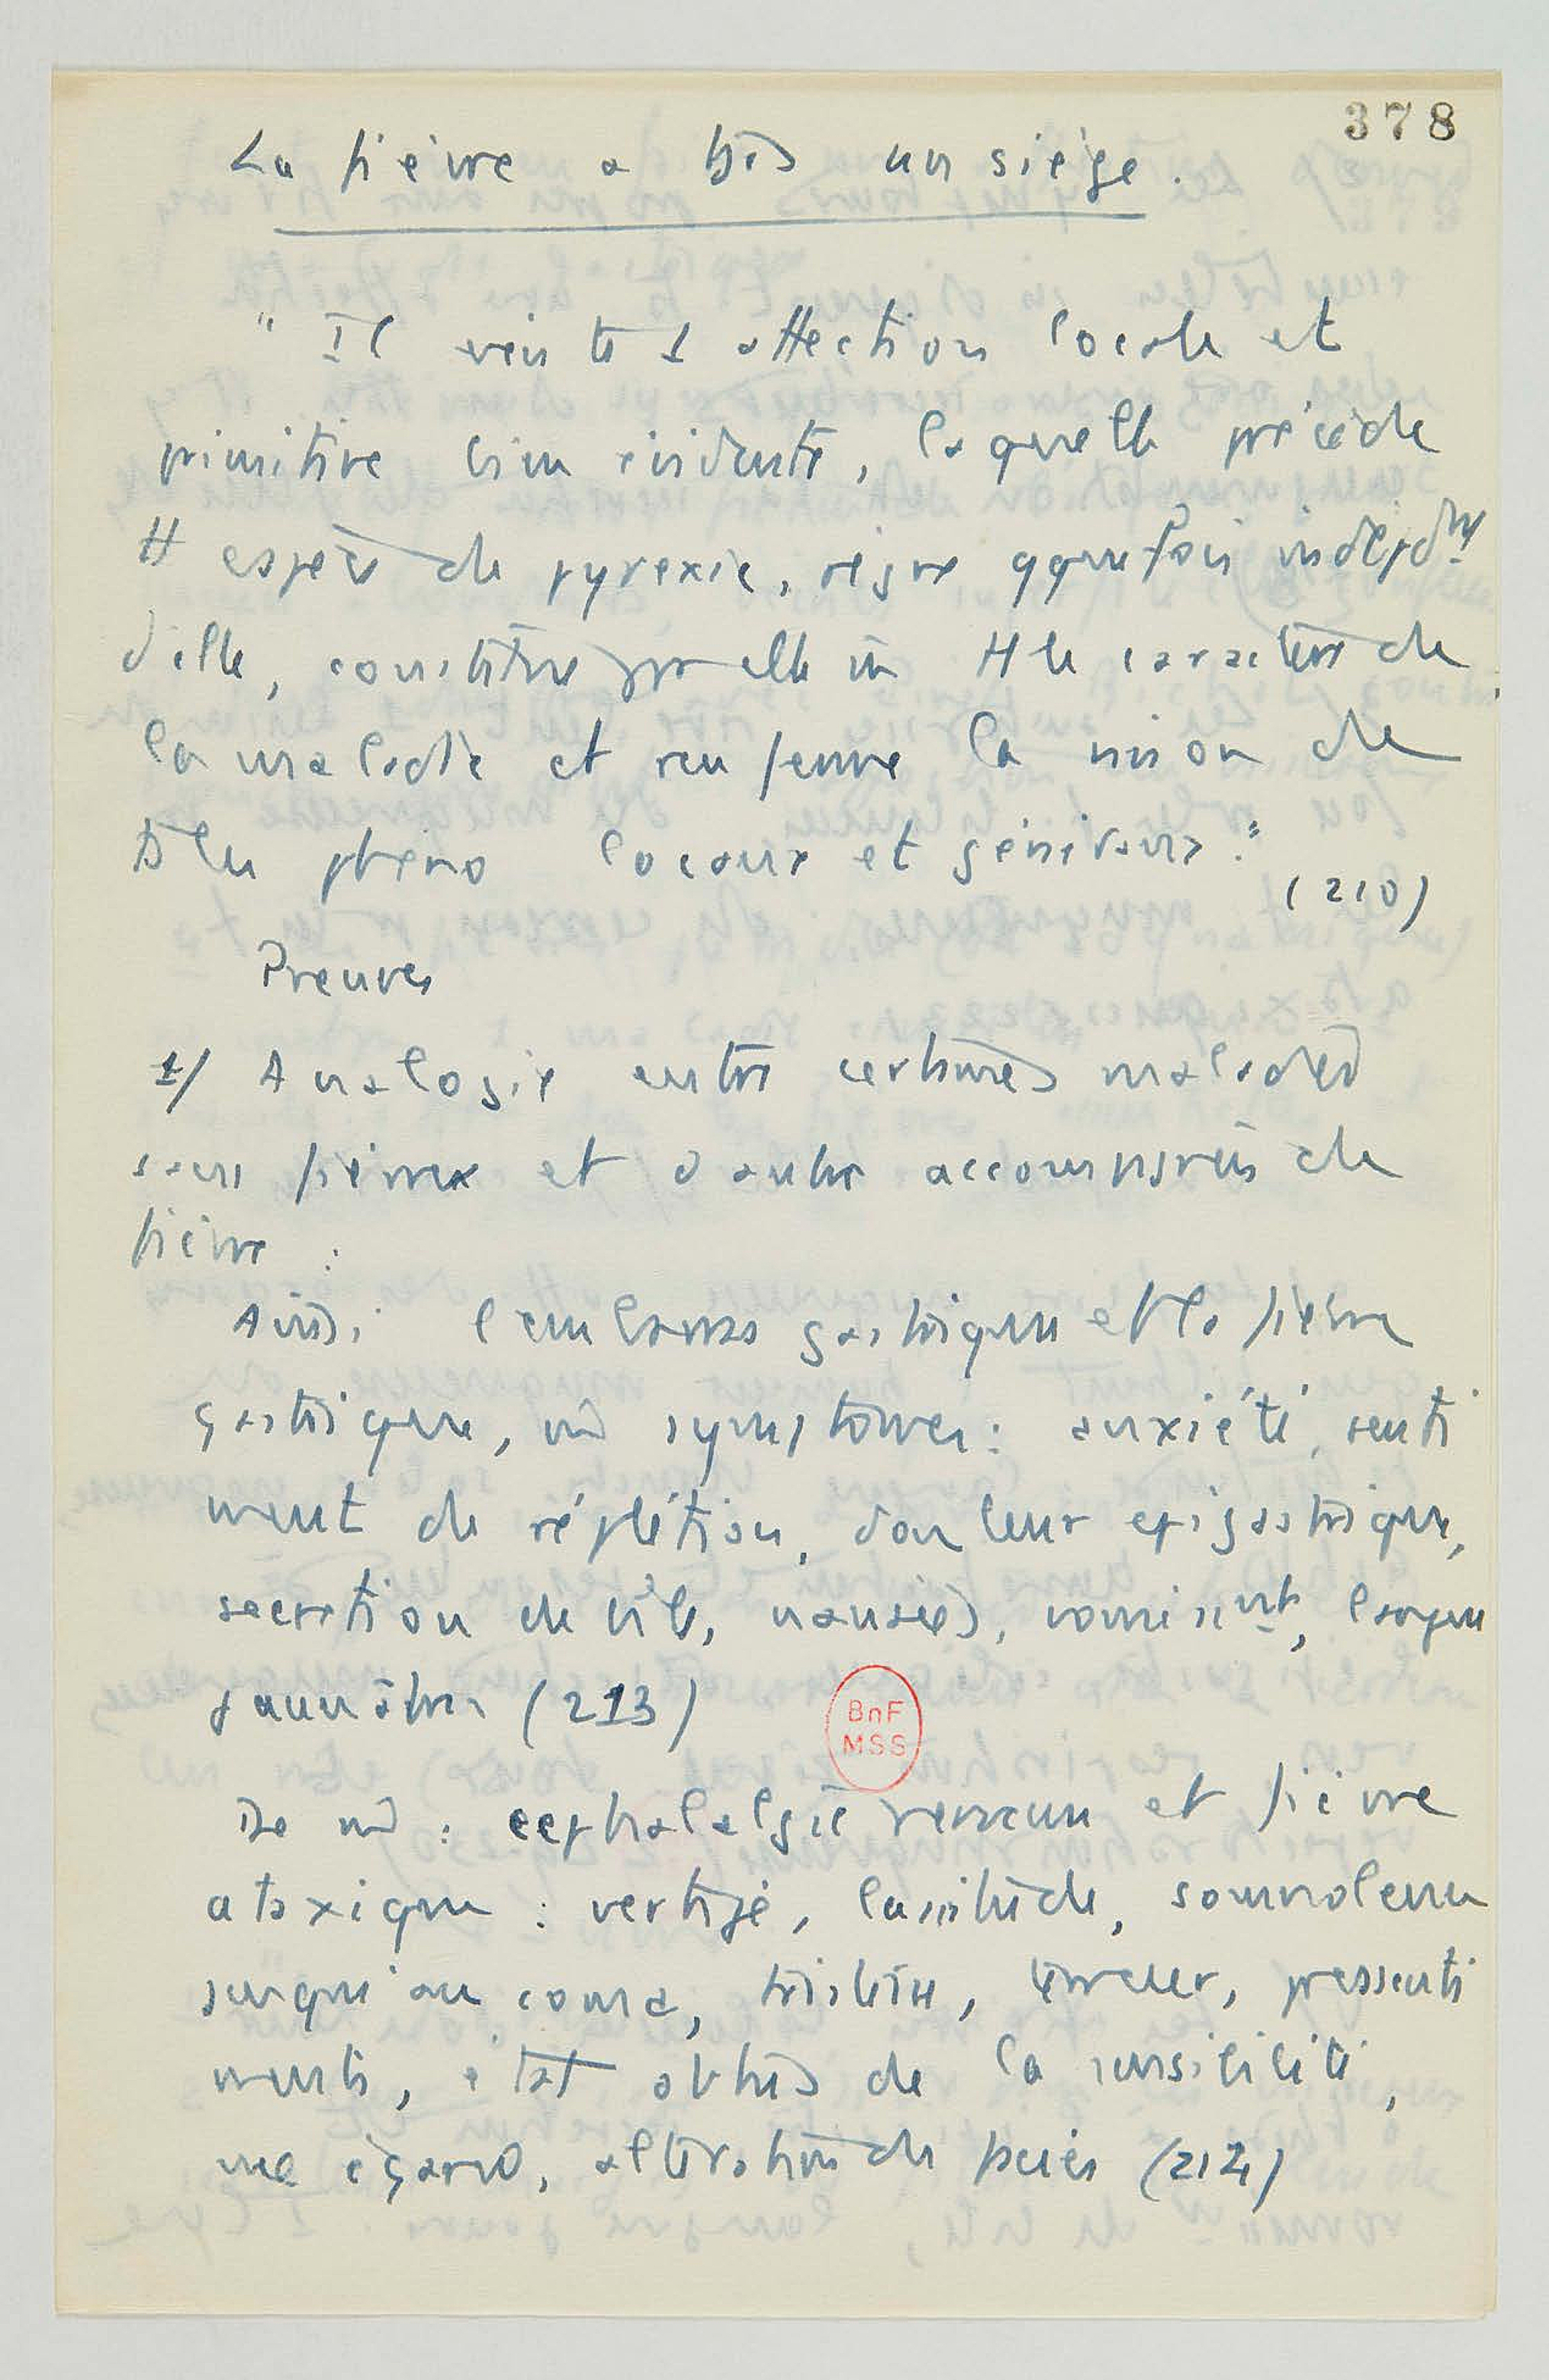 378
La fièvre a tjrs un siège.
" Il existe 1 affection locale et
primitive bien évidente, laquelle précède
tt espèce de pyrexie, règne qquefois indépdmt
d'elle, constitue par elle m̂ tt le caractère de
la maladie et renferme la raison de
ts les phéno locaux et généraux."
(210)
Preuves
1/ Analogie entre certaines maladies
sans fièvre et d'autre accompagnées de
fièvre :
Ainsi l'embarras gastrique et la fièvre
gastrique, m̂ symptomes : anxiété, senti
ment de réplétion, douleur epigastrique,
secretion de bile, nausées, vomissmts, langue
jaunâtre (213)
BnF
MSS
De m̂ : cephalalgie et fièvre
ataxique : vertige, lassitude, somnolence
jusqu'au coma, tristesse, terreur, pressenti
ments, état obtus de la sensibilité,
vue égarée, altération du faciès (214)